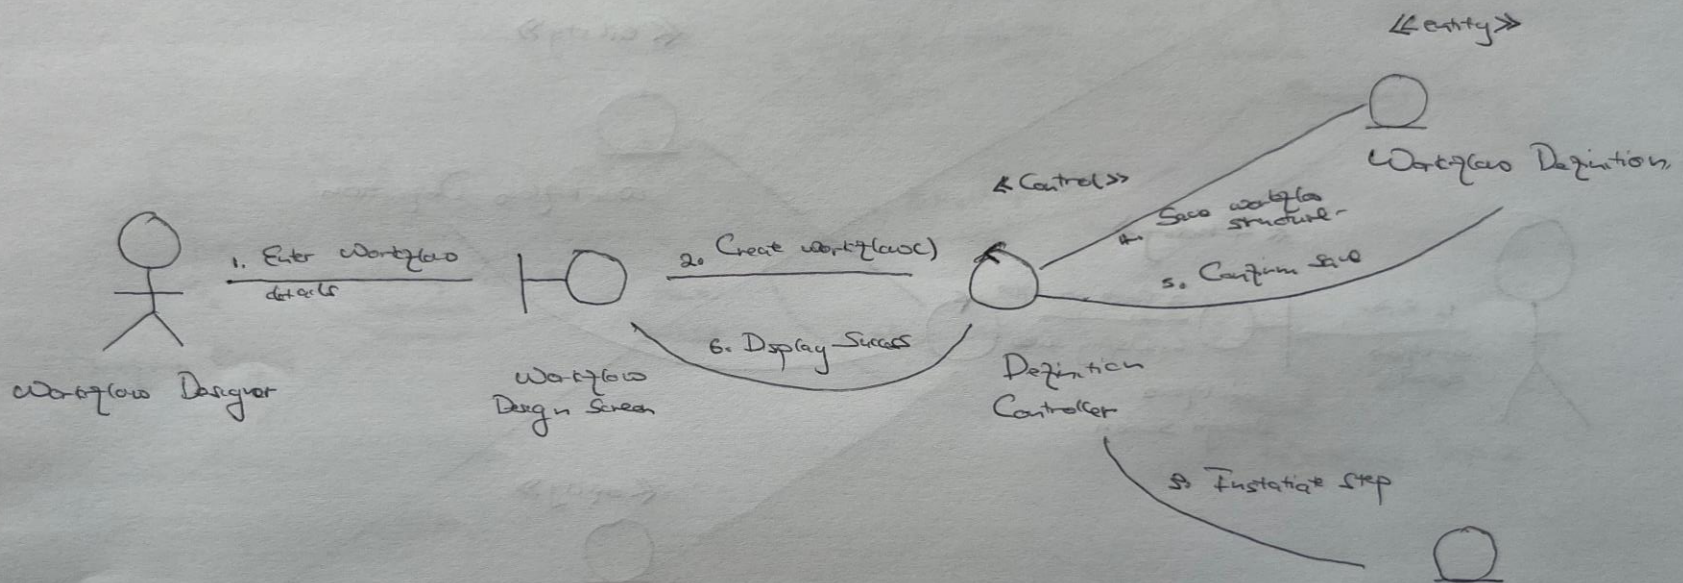 <<entity>>
Workflow Definition
<<Control>>
4. Save workflow
structure
1. Enter Workflow
details
2. Create workflow()
5. Confirm save
6. Display Success
Workflow Designer
Workflow
Design Screen
Definition
Controller
3. Instatiate Step